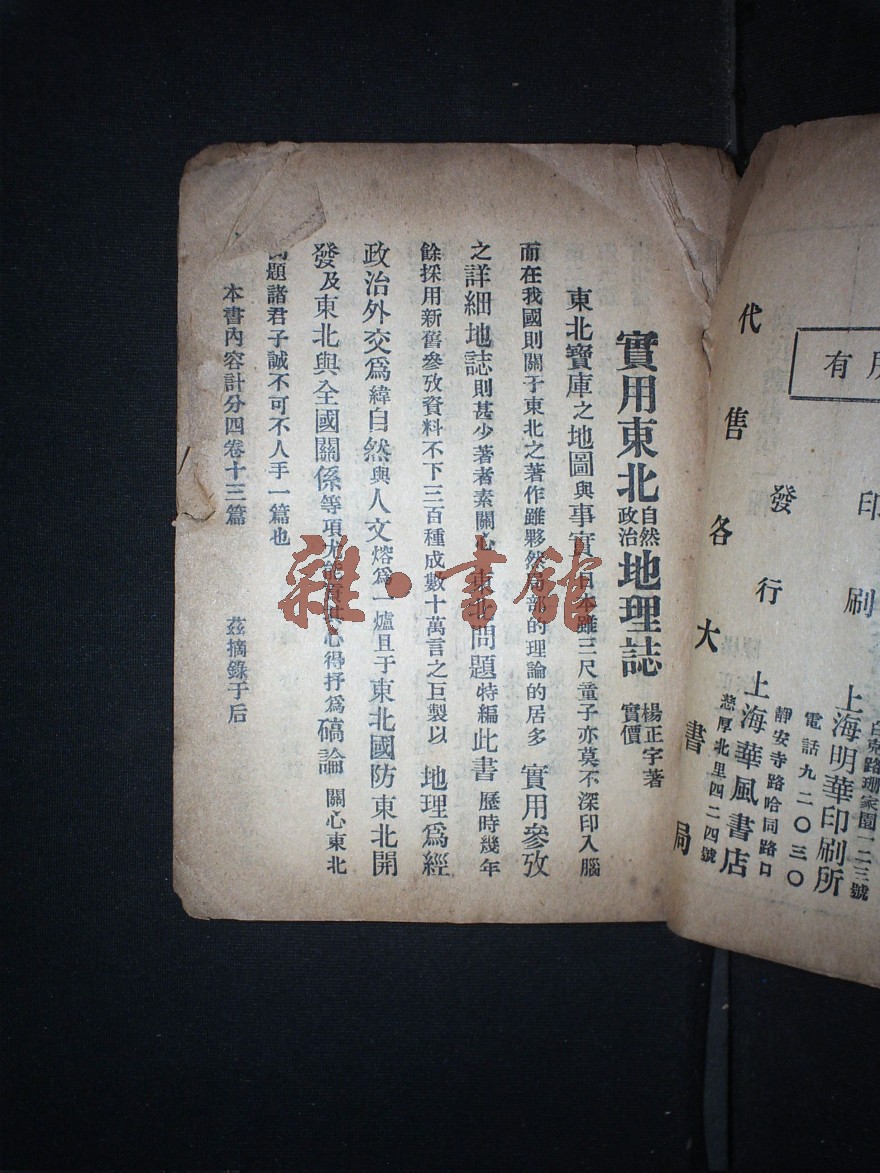 有
印刷 上海明華印刷所
白克路珊家園一二三號
電話九二〇三〇
發行 上海華風書店
靜安寺路哈同路口
慈厚北里四二四號
代售各大書局
實用東北自然政治地理誌 楊正宇著 實價
東北寶庫之地圖與事實日本雖三尺童子亦莫不深印入腦
而在我國則關于東北之著作雖夥然局部的理論的居多 實用參攷
之詳細地誌則甚少著者素關心東北問題特編此書 歷時幾年
餘採用新舊參攷資料不下三百種成數十萬言之巨製以 地理爲經
政治外交爲緯自然與人文熔爲一爐且于東北國防東北開
發及東北與全國關係等項尤能 心得抒爲碻論 關心東北
問題諸君子誠不可不人手一篇也
本書內容計分四卷十三篇 茲摘錄于后
雜·書館